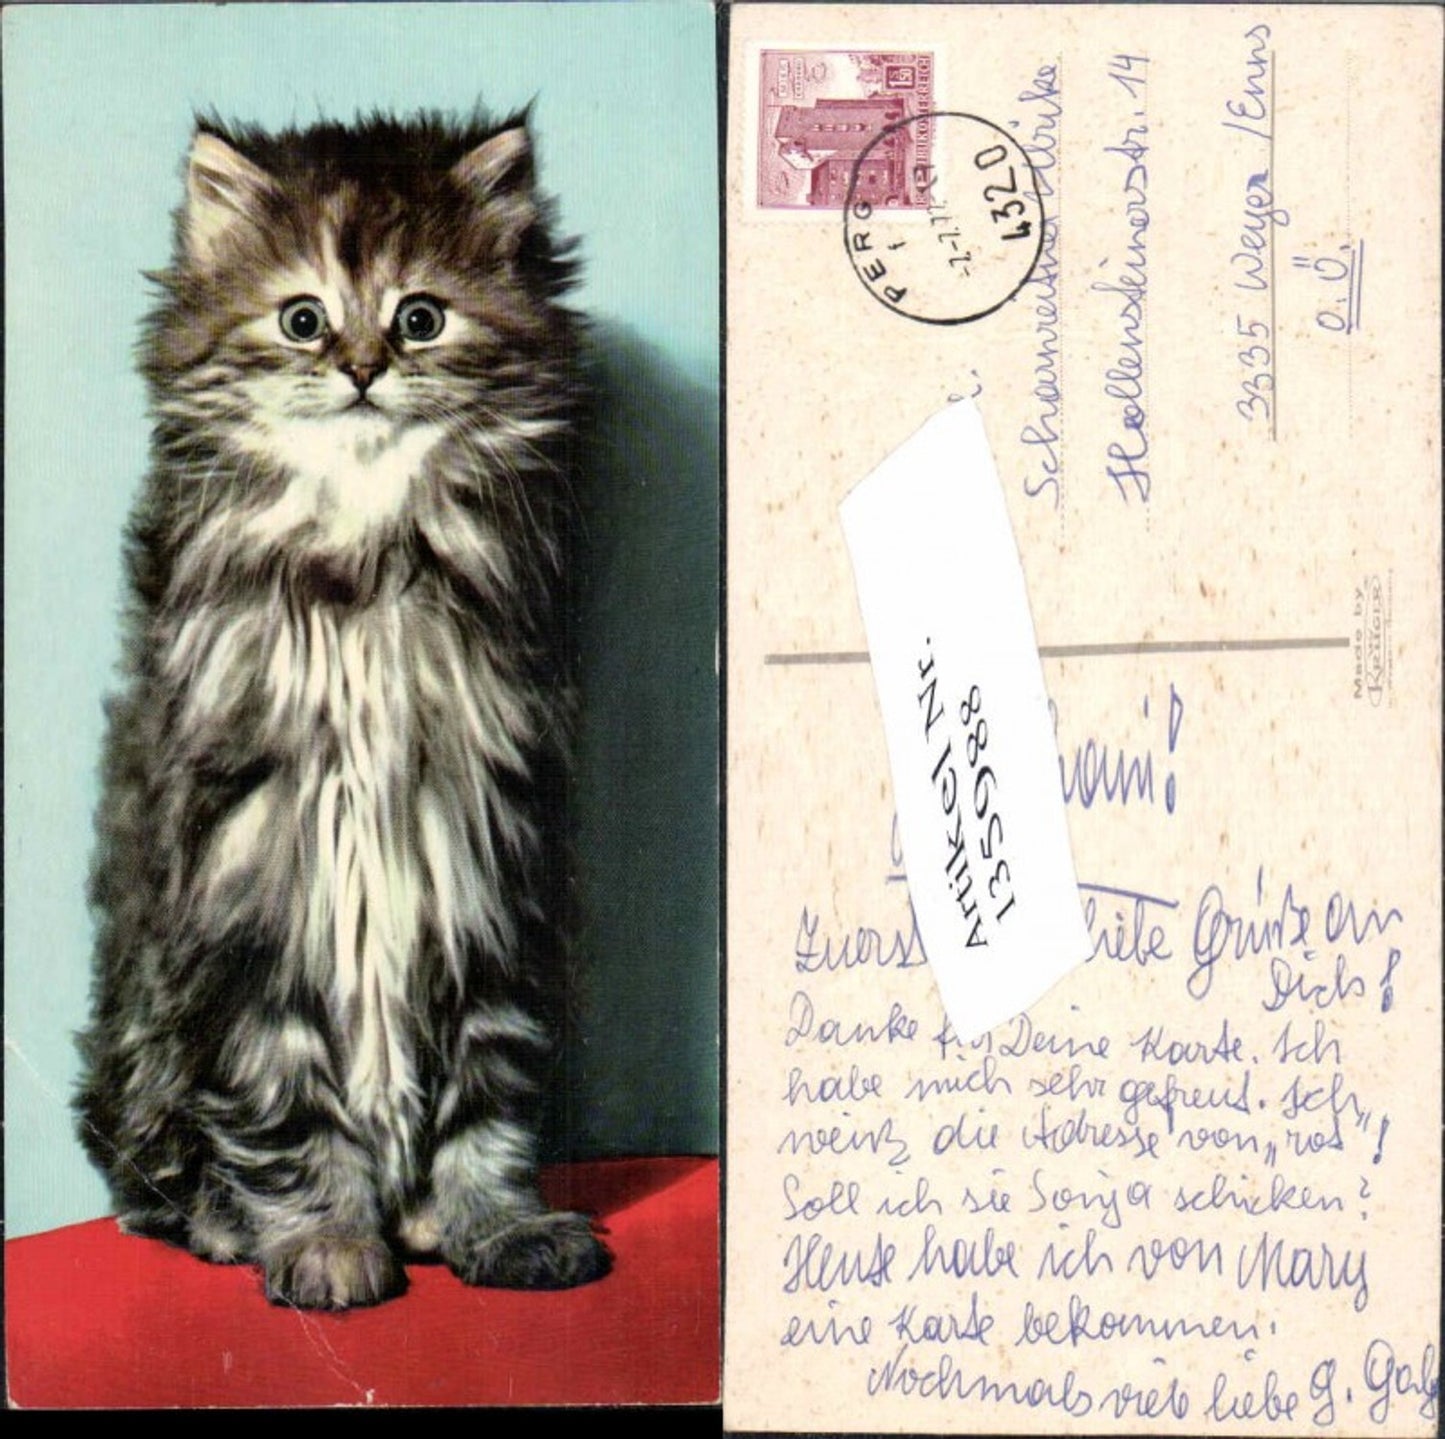 1.50
REPUBLIK ÖSTERREICH
PERG
1
4320
Scharnreitner Ulrike
Hollensteinerstr. 14
3335 Weyer /Enns
O.Ö.
Made by
KRÜGER
Artikel Nr.
1359988
Zuerst liebe Grüße an
Dich!
Danke für Deine Karte. Ich
habe mich sehr gefreut. Ich
weiß die Adresse von „rot"!
Soll ich sie Sonja schicken?
Heute habe ich von Mary
eine Karte bekommen.
Nochmals viele liebe G.